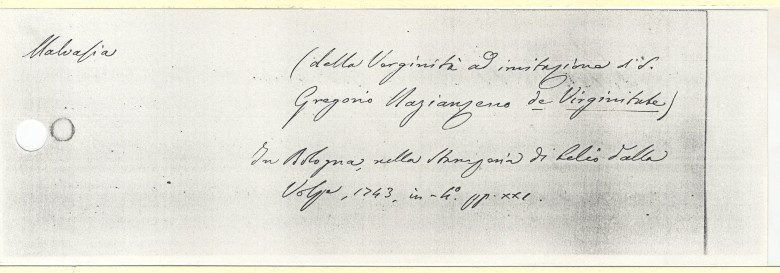 Malvasia
(della Verginità ad imitazione di S.
Gregorio Nazianzeno de Virginitate)
In Bologna, nella Stamperia di Lelio dalla
Volpe, 1743, in-4°. pp. XXI.